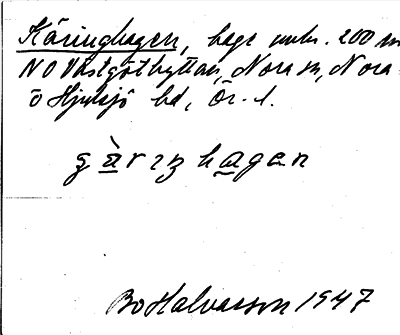 Käringhagen, hage omkr. 200 m
NO Västgöthyttan, Nora sn, Nora
o Hjulsjö bd, Ör. l.
hagen
Bo Halvarsson 1947